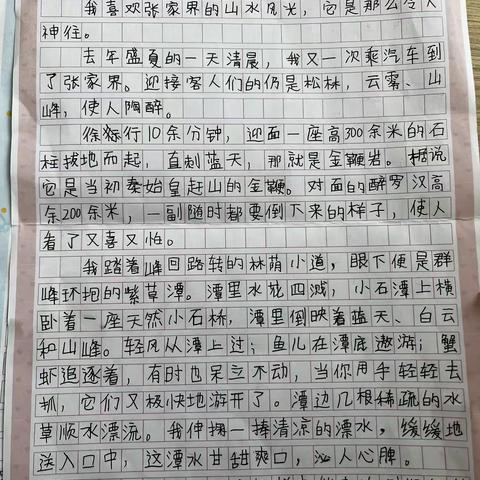 我喜欢张家界的山水风光，它是那么令人
神往。
去年盛夏的一天清晨，我又一次乘汽车到
了张家界。迎接客人们的仍是松林，云雾、山
峰，使人陶醉。
徐徐行10余分钟，迎面一座高300余米的石
柱拔地而起，直刺蓝天，那就是金鞭岩。据说
它是当初秦始皇赶山的金鞭。对面的醉罗汉高
余200余米，一副随时都要倒下来的样子，使人
看了又喜又怕。
我踏着峰回路转的林荫小道，眼下便是群
峰环抱的紫草潭。潭里水花四溅，小石潭上横
卧着一座天然小石桥，潭里倒映着蓝天、白云
和山峰。轻风从潭上过；鱼儿在潭底遨游；蟹
虾追逐着，有时也呆立不动，当你用手轻轻去
抓，它们又极快地游开了。潭边几根稀疏的水
草顺水漂流。我伸掬一捧清凉的漂水，缓缓地
送入口中，这潭水甘甜爽口，沁人心脾。